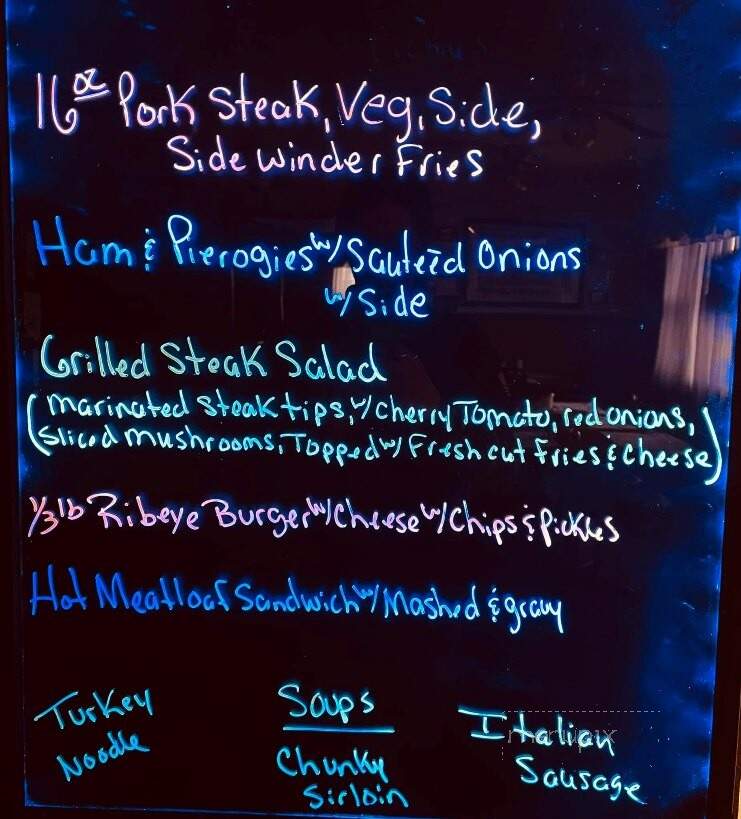 16oz Pork Steak, Veg, Side,
Side Winder Fries
Ham & Pierogies w/ Sauteed Onions
w/ Side
Grilled Steak Salad
(marinated Steak tips, w/ Cherry Tomato, red onions,
Sliced mushrooms, Topped w/ Fresh cut fries & Cheese)
1/3 lb Ribeye Burger w/ Cheese w/ Chips & Pickles
Hot Meatloaf Sandwich w/ Mashed & gravy
Soups
Turkey
Noodle
Chunky
Sirloin
Italian
Sausage